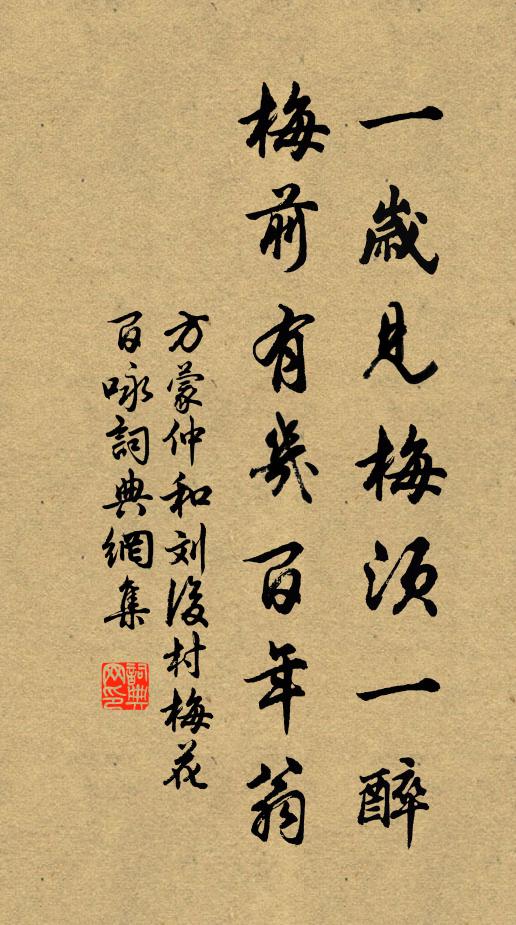 一歲見梅須一醉
梅前有幾百年翁
方蒙仲和刘後村梅花
百咏詞典網集
詞典网印